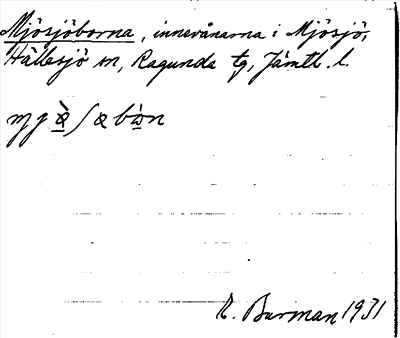 Mjösjöborna, innevånarna i Mjösjö,
Hällesjö sn, Ragunda tg, Jämtl. l.
R. Burman 1931